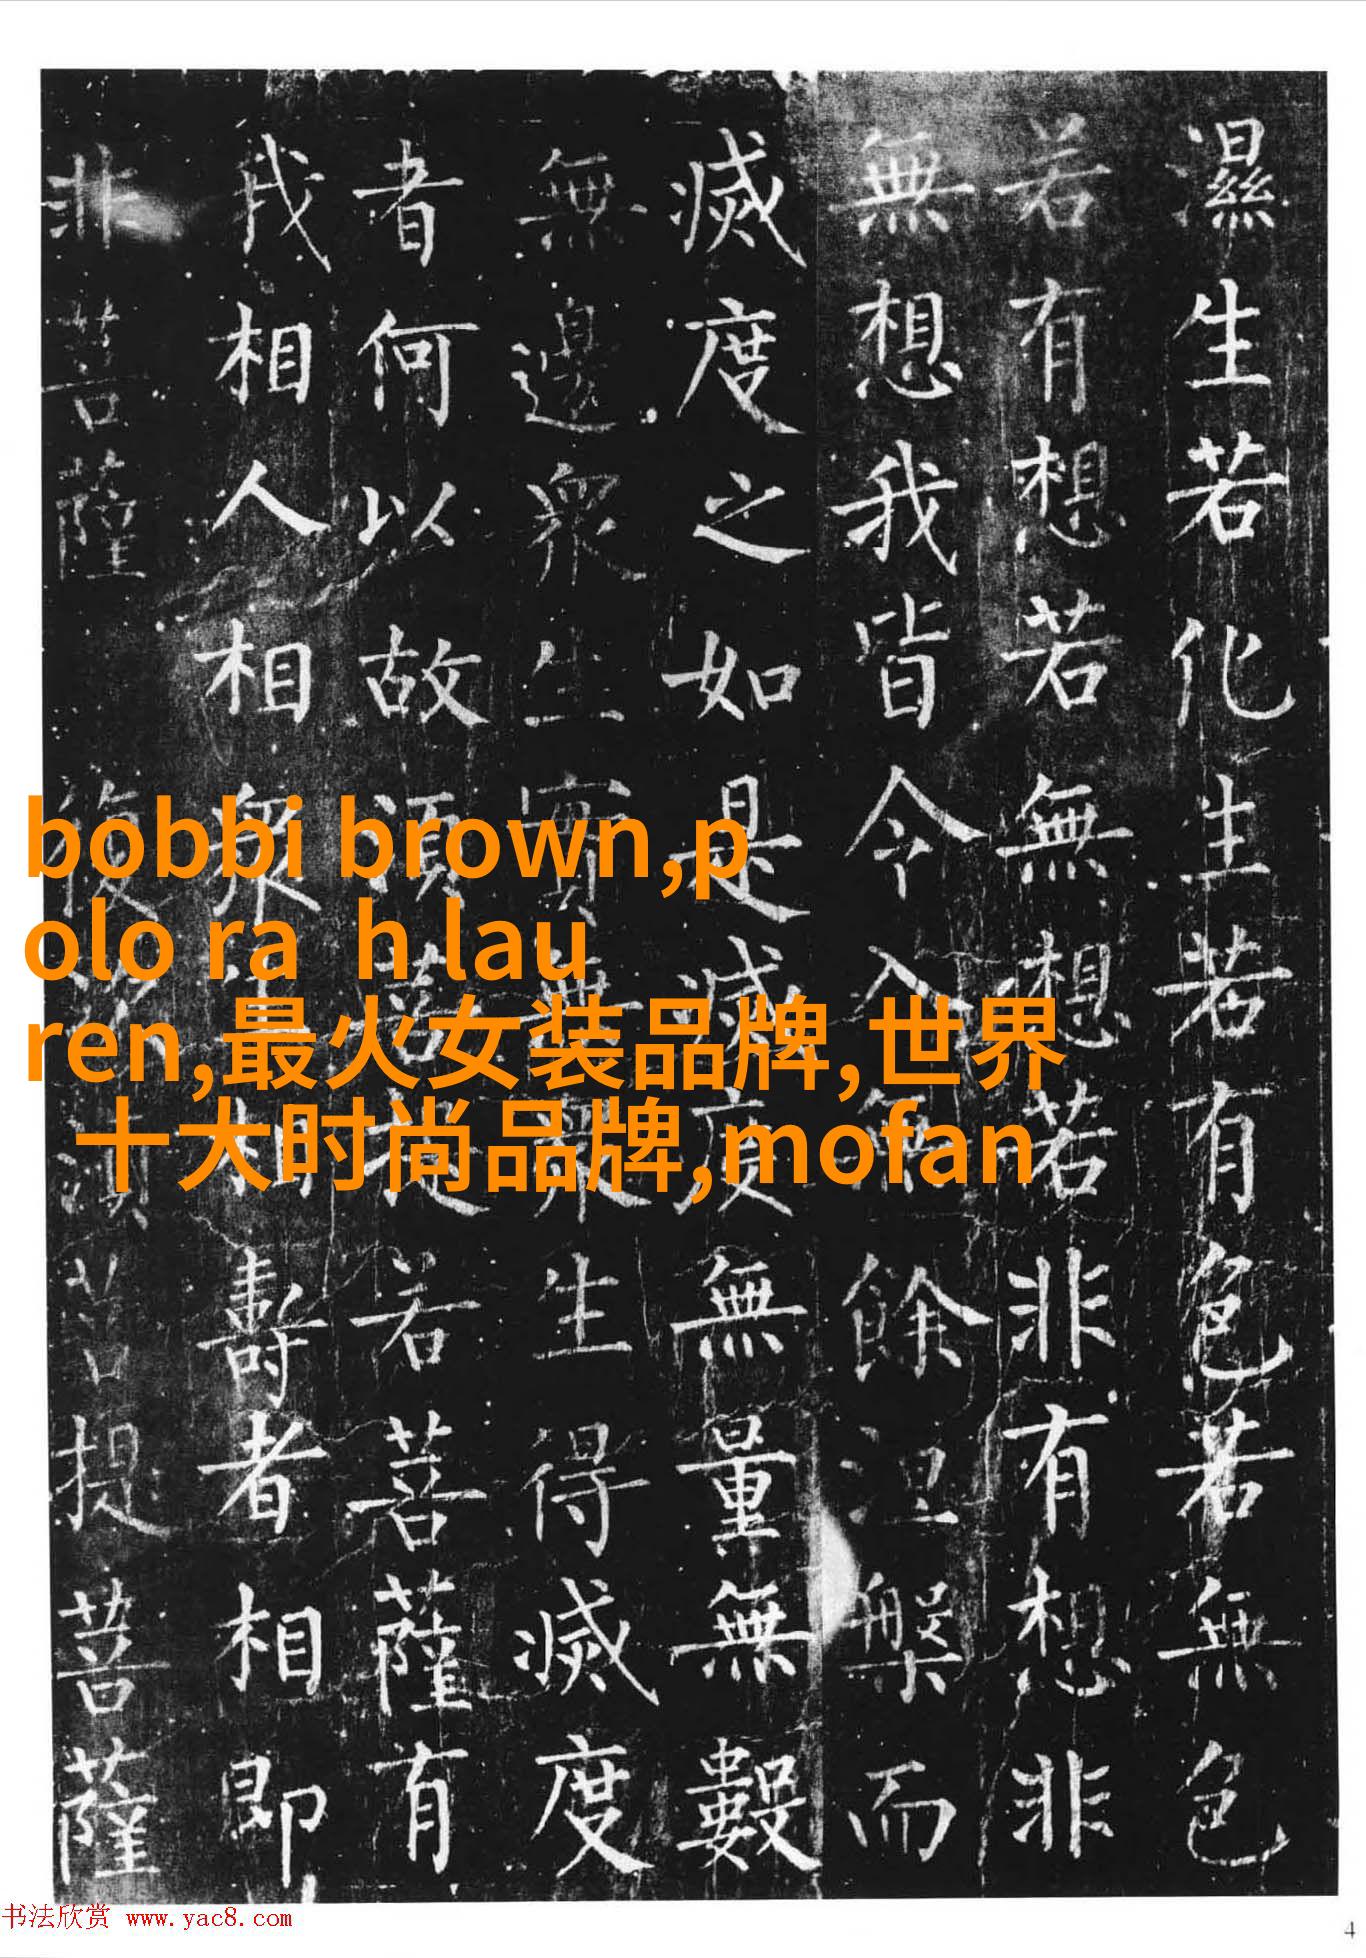 濕生若化生若有色若無色
若有想若無想若非有想非
無想我皆令入無餘涅槃而
滅度之如是滅度無量無數
無邊眾生實無眾生得滅度
者何以故須菩提若菩薩有
我相人相眾生相壽者相即
非菩薩 復次須菩提菩薩
bobbi brown,p
olo ra h lau
ren,最火女装品牌,世界
十大时尚品牌,mofan
书法欣赏 www.yac8.com
4